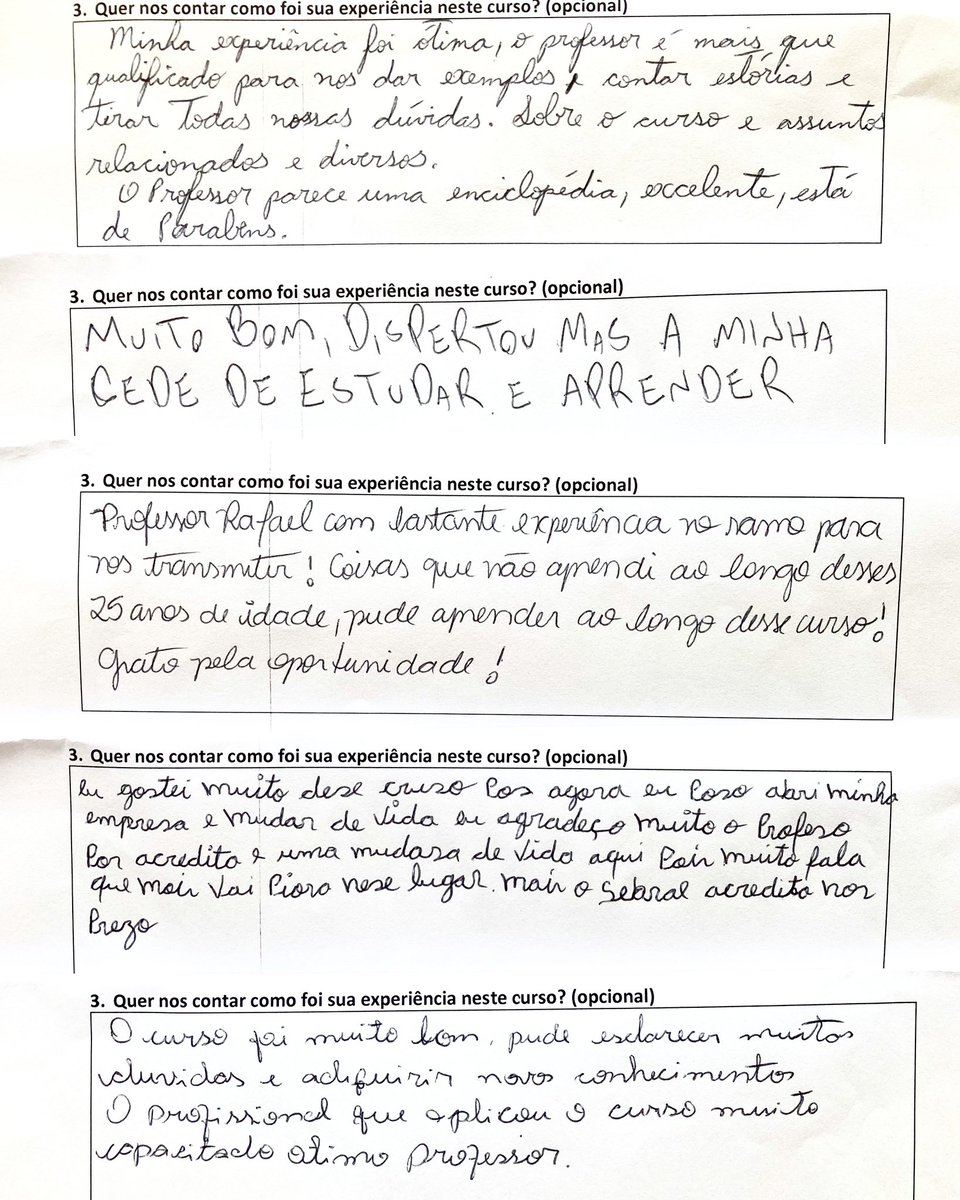 3. Quer nos contar como foi sua experiência neste curso? (opcional)
Minha experiência foi ótima, o professor é mais que
qualificado para nos dar exemplos, contar estórias e
tirar Todas nossas dúvidas. Sobre o curso e assuntos
relacionados e diversos.
O Professor parece uma enciclopédia, excelente, está
de Parabens.
3. Quer nos contar como foi sua experiência neste curso? (opcional)
MUITO BOM, DISPERTOU MAS A MINHA
CEDE DE ESTUDAR E APRENDER
3. Quer nos contar como foi sua experiência neste curso? (opcional)
Professor Rafael com bastante experiência no ramo para
nos transmitir! Coisas que não aprendi ao longo desses
25 anos de idade, pude aprender ao longo desse curso!
Grato pela oportunidade!
3. Quer nos contar como foi sua experiência neste curso? (opcional)
Eu gostei muito dese cruso Pos agora eu Poso abri minha
empresa e mudar de vida eu agradeço muito o Profeso
Por acredita e uma mudasa de vida aqui Pois muito fala
que mais vai Piora nese lugar. mais o Sebral acredita nos
Prezo
3. Quer nos contar como foi sua experiência neste curso? (opcional)
O curso foi muito bom, pude esclarecer muitos
duvidas e adiquirir novos conhecimentos
O profissional que aplicou o curso muito
capacitado otimo professor.